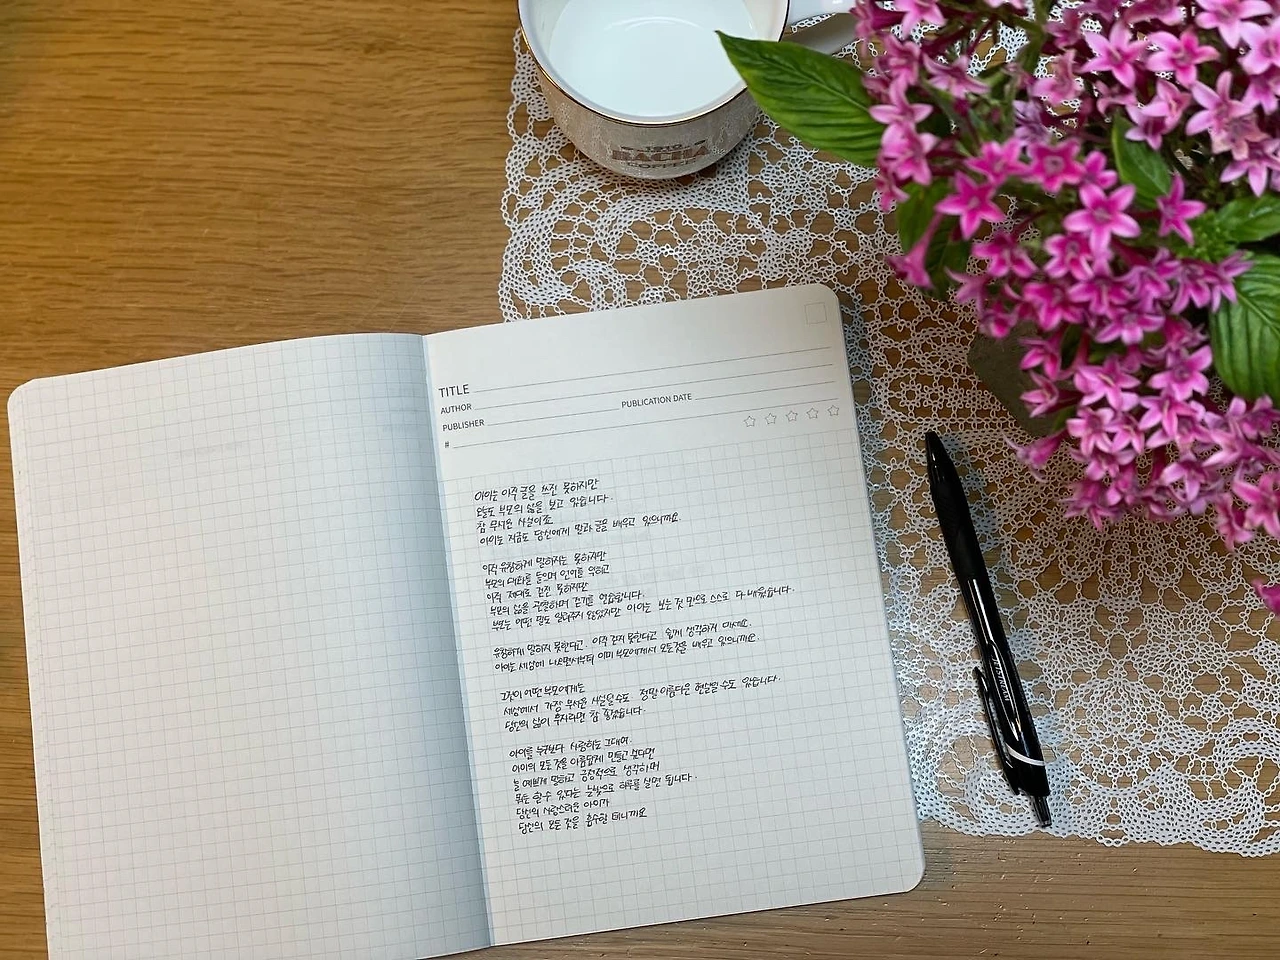 1910
BACHA
COFFEE
TITLE
AUTHOR
PUBLISHER PUBLICATION DATE
#
아이는 아직 글을 쓰진 못하지만
오늘도 부모의 삶을 보고 있습니다.
참 무서운 사실이죠
아이는 지금도 당신에게 말과 글을 배우고 있으니까요.
아직 유창하게 말하지는 못하지만
부모의 대화를 들으며 언어를 익히고
아직 제대로 걷진 못하지만
부모의 삶을 관찰하며 걷기를 연습합니다.
부모는 어떤 말도 알려주지 않았지만 아이는 보는 것 만으로 스스로 다 배웠습니다.
유창하게 말하지 못한다고. 아직 걷지 못한다고 쉽게 생각하지 마세요.
아이는 세상에 나오면서부터 이미 부모에게서 모든 것을 배우고 있으니까요.
그것이 어떤 부모에게는
세상에서 가장 무서운 사실일 수도 정말 아름다운 현실일 수도 있습니다.
당신의 삶이 후자라면 참 좋겠습니다.
아이를 누구보다 사랑하는 그대여.
아이의 모든 것을 아름답게 만들고 싶다면
늘 예쁘게 말하고 긍정적으로 생각하며
뭐든 할 수 있다는 눈빛으로 하루를 살면 됩니다.
당신의 사랑스러운 아이가
당신의 모든 것을 흡수할 테니까요